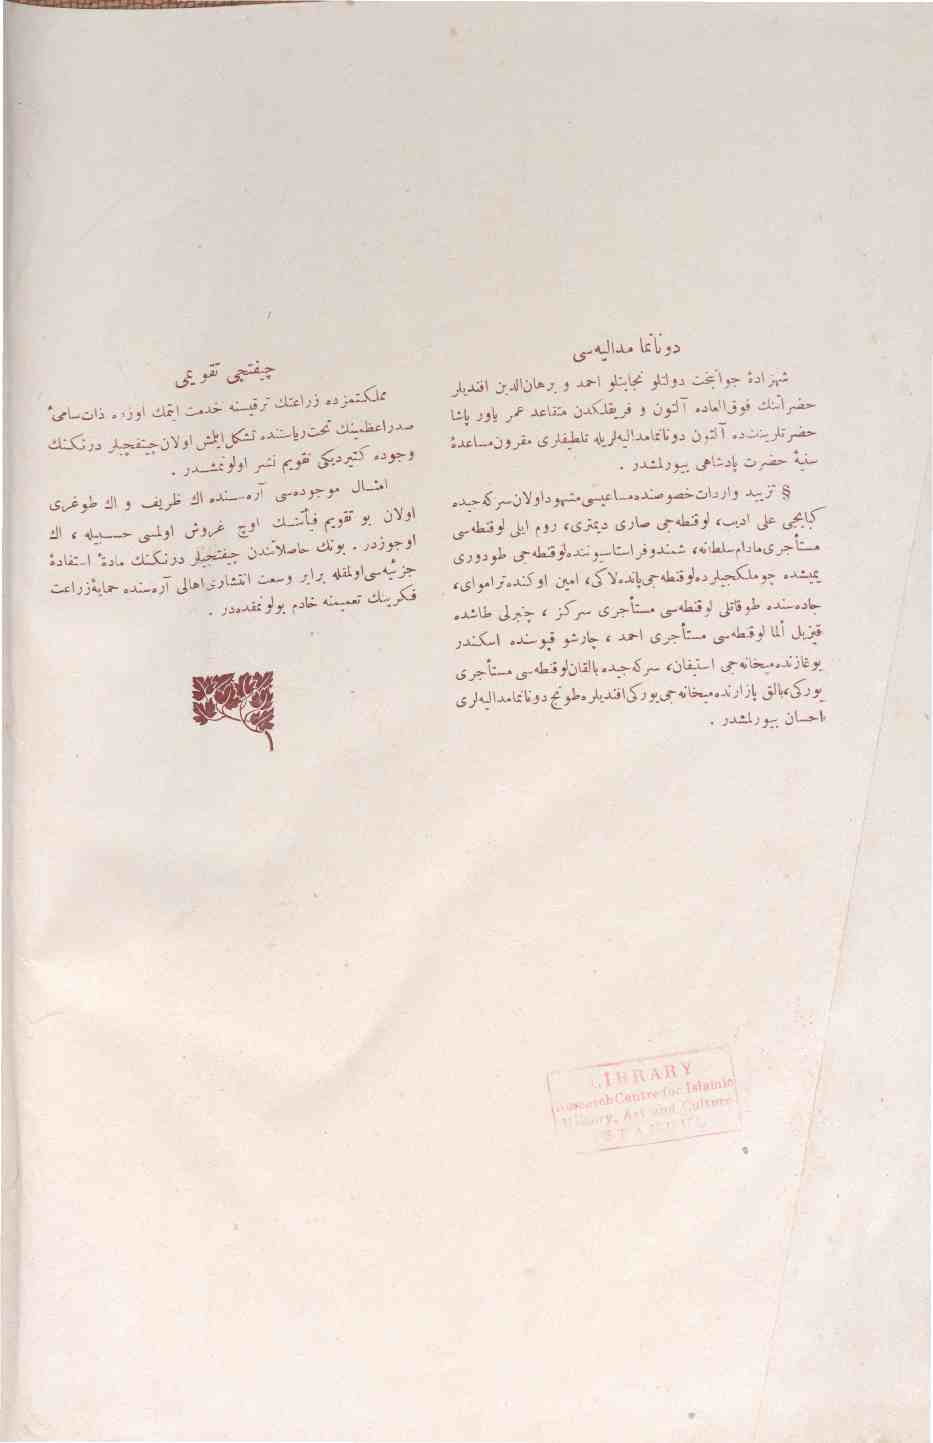 دونانما مدالیه‌سی
شهزادهٔ جوانبخت دولتلو نجابتلو احمد و برهان‌الدین افندیلر
حضراتنك فوق‌العاده آلتون و فریقلكدن متقاعد عمر یاور پاشا
حضرتلرینك‌ده آلتون دونانمامدالیه‌لریله تلطیفلری مقرون‌مساعدهٔ
سنیهٔ حضرت پادشاهی بیورلمشدر .
§ تزیید واردات‌خصوصنده‌مساعیسی‌مشهوداولان‌سركه‌جیده
كبابجی علی ادیب، لوقنطه‌جی صاری دیمتری، روم ایلی لوقنطه‌سی
مستأجری‌مادام‌سلطانه، شمندوفر استاسیوننده‌لوقنطه‌جی طودوری
یمیشده چوملكجیلرده‌لوقنطه‌جی‌پانده‌لاكی، امین اوكنده‌تراموای،
جاده‌سنده طوقاتلی لوقنطه‌سی مستأجری سركز ، چنبرلی طاشده
قیزیل آلما لوقنطه‌سی مستأجری احمد ، چارشو قپوسنده اسكندر
بوغازنده‌میخانه‌جی استیفان، سركه‌جیده بالقان‌لوقنطه‌سی مستأجری
یوركی،بالق پازارنده‌میخانه‌جی‌یوركی‌افندیلره‌طونج‌دونانمامدالیه‌لری
احسان بیورلمشدر .
چیفتجی تقویمی
مملكتمزده زراعتك ترقیسنه خدمت ایتمك اوزره ذات‌سامیٔ
صدراعظمینك تحت‌ریاستنده تشكل‌ایلمش اولان‌چیتفچیلر درنكنك
وجوده كتیردیكی تقویم نشر اولونمشـدر .
امثـال موجوده‌سی آره‌سـنده اك ظریف و اك طوغری
اولان بو تقویم فیأتنـك اوچ غروش اولمسی حسـبیله ، اك
اوجوزدر . بونك حاصلاتندن چیفتجیلر درنكنك مادةً استفادهٔ
جزئیه‌سی‌اولمقله برابر وسعت انتشاری‌اهالی آره‌سنده حمایهٔ‌زراعت
فكرینك تعمیمنه خادم بولونمقده‌در .
LIBRARY
Research Centre for Islamic
History, Art and Culture
ISTANBUL